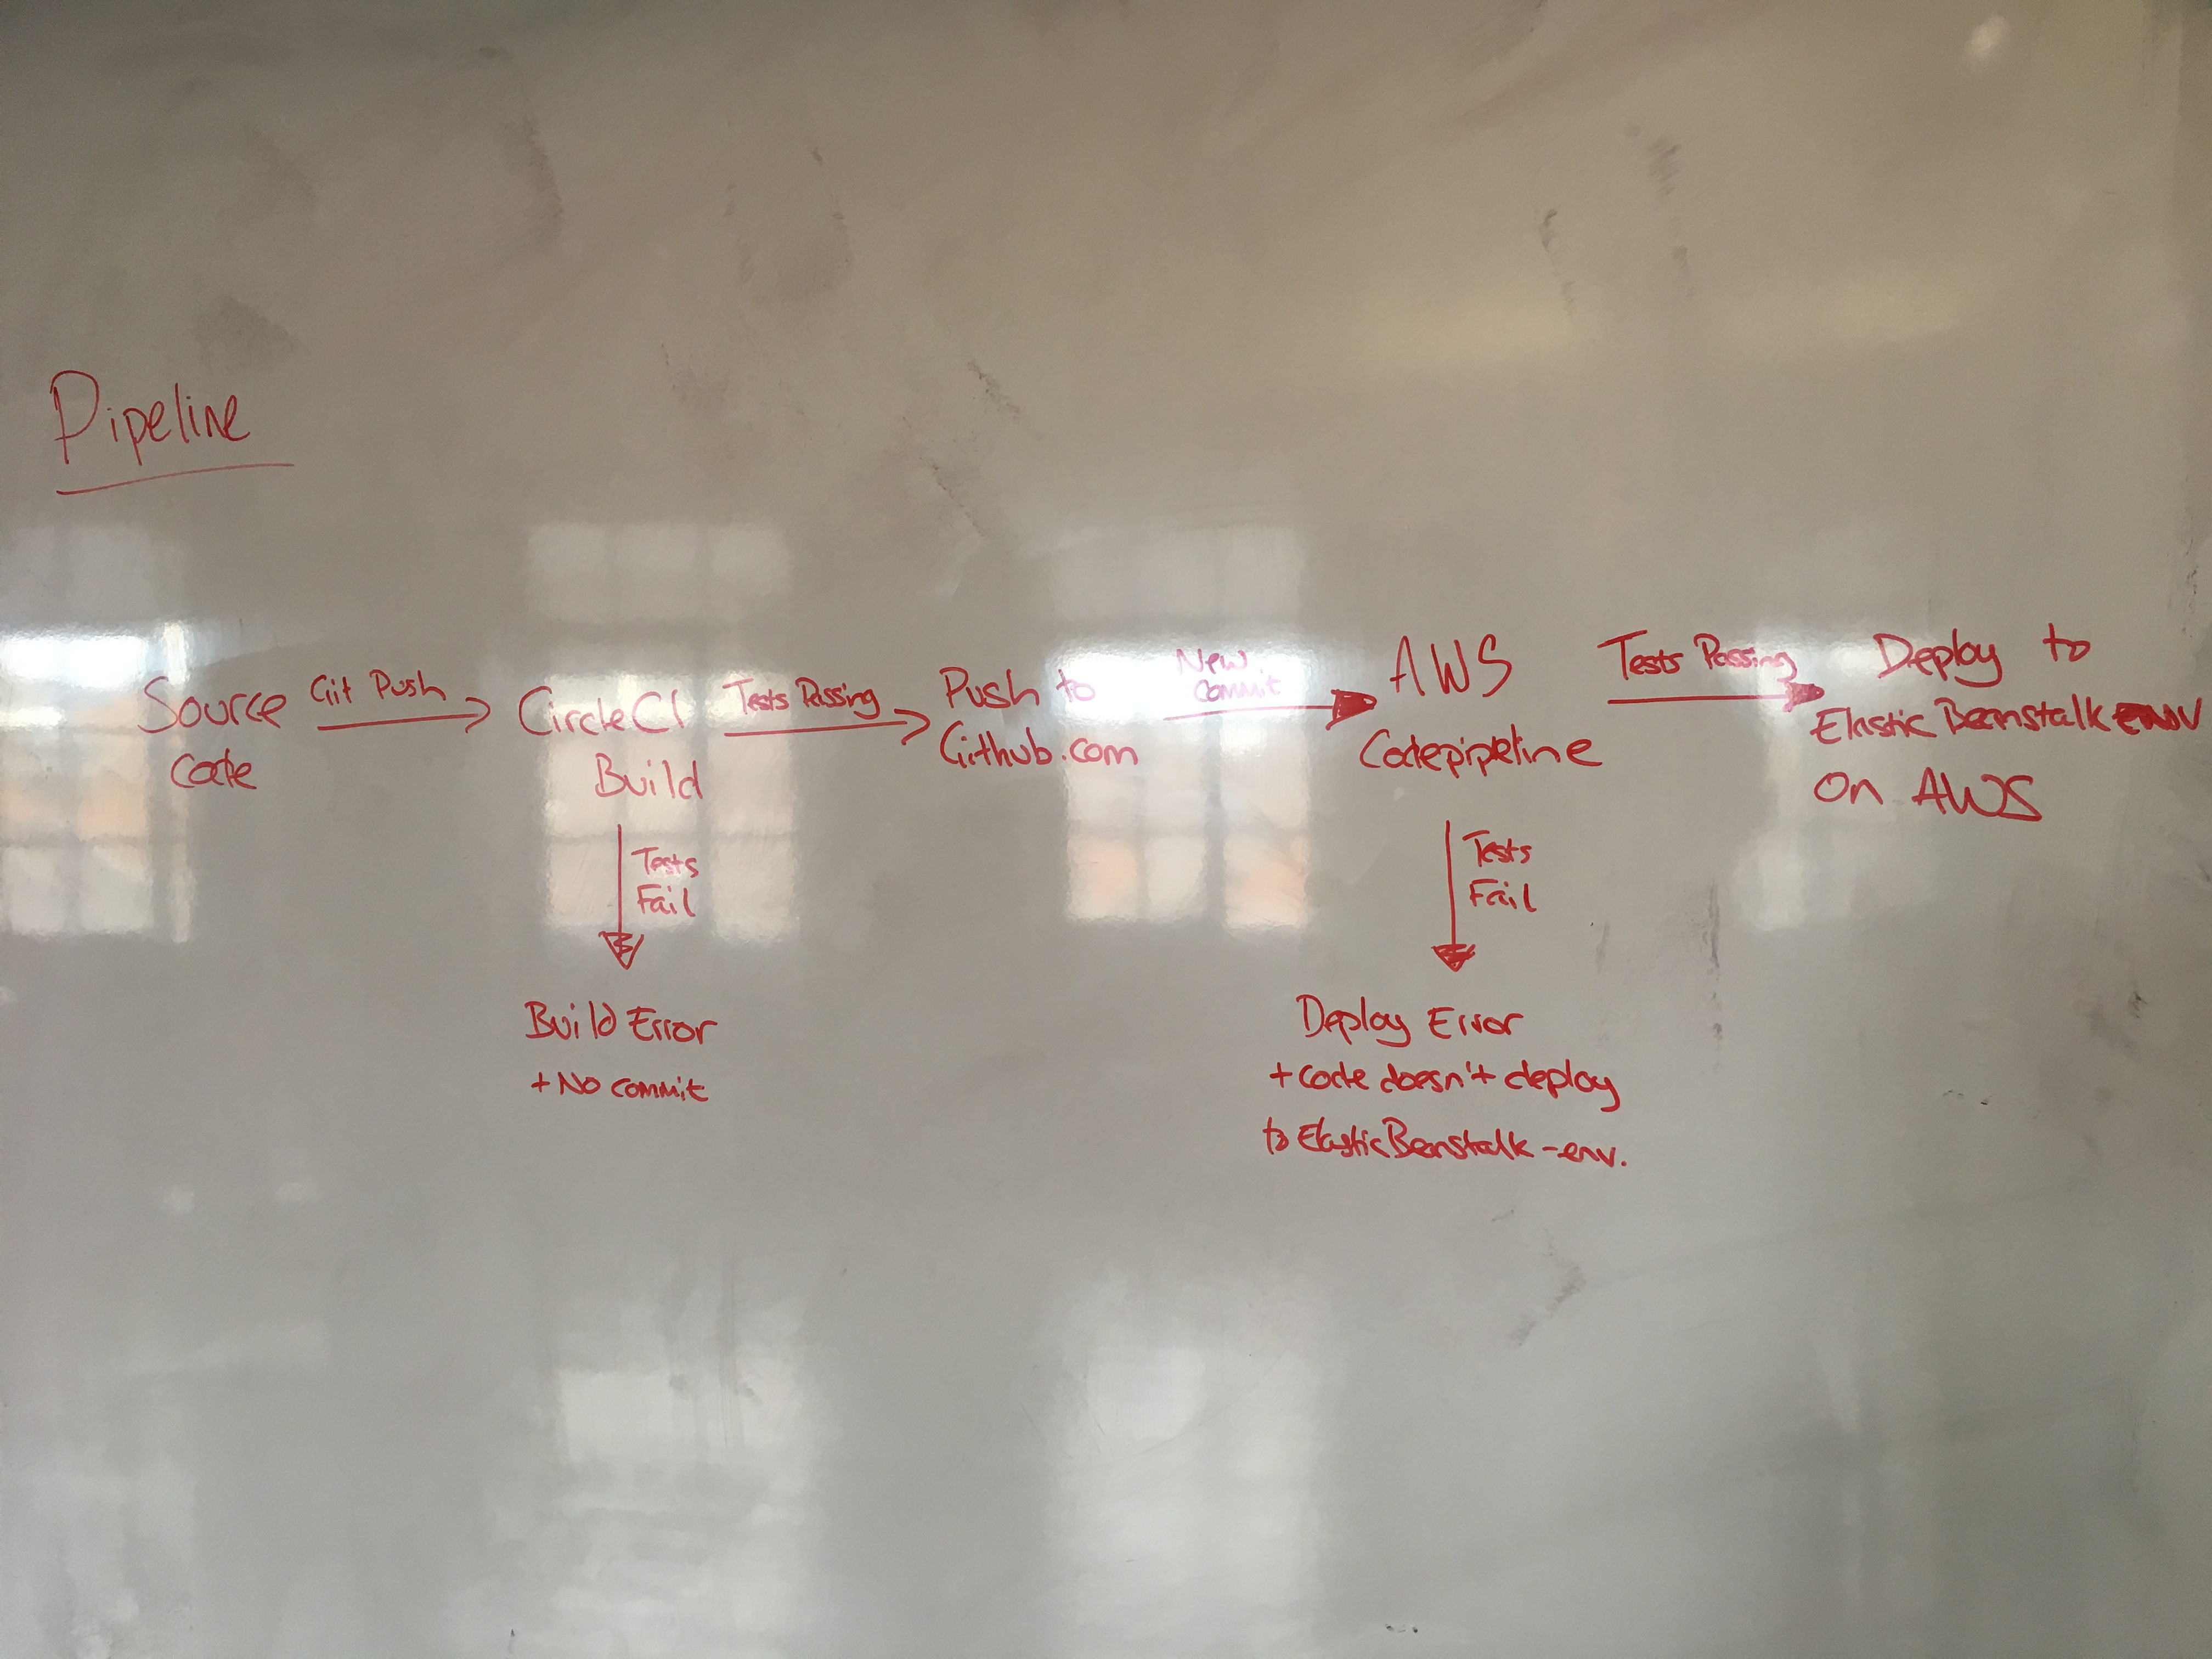 Pipeline
Source
Code
Git Push
CircleCI
Build
Tests Passing
Push to
Github.com
New
Commit
AWS
Codepipeline
Tests Passing
Deploy to
Elastic Beanstalk ENV
on AWS
Tests
Fail
Build Error
+ No commit
Tests
Fail
Deploy Error
+ Code doesn't deploy
to ElasticBeanstalk-env.